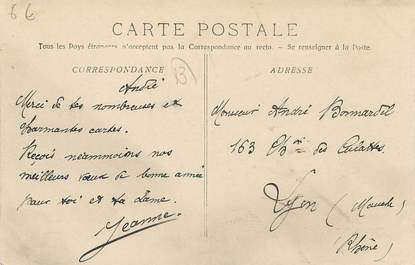 6 €
CARTE POSTALE
Tous les Pays étrangers n'acceptent pas la Correspondance au recto. - Se renseigner à la Poste.
CORRESPONDANCE
B
André
Merci de tes nombreuses et
charmantes cartes.
Reçois néammoins nos
meilleurs vœux de bonne année
pour toi et ta dame.
Jeanne.
ADRESSE
Monsieur André Bonnardel
163 Ch.in des Culattes.
Lyon (Mouche)
Rhône)